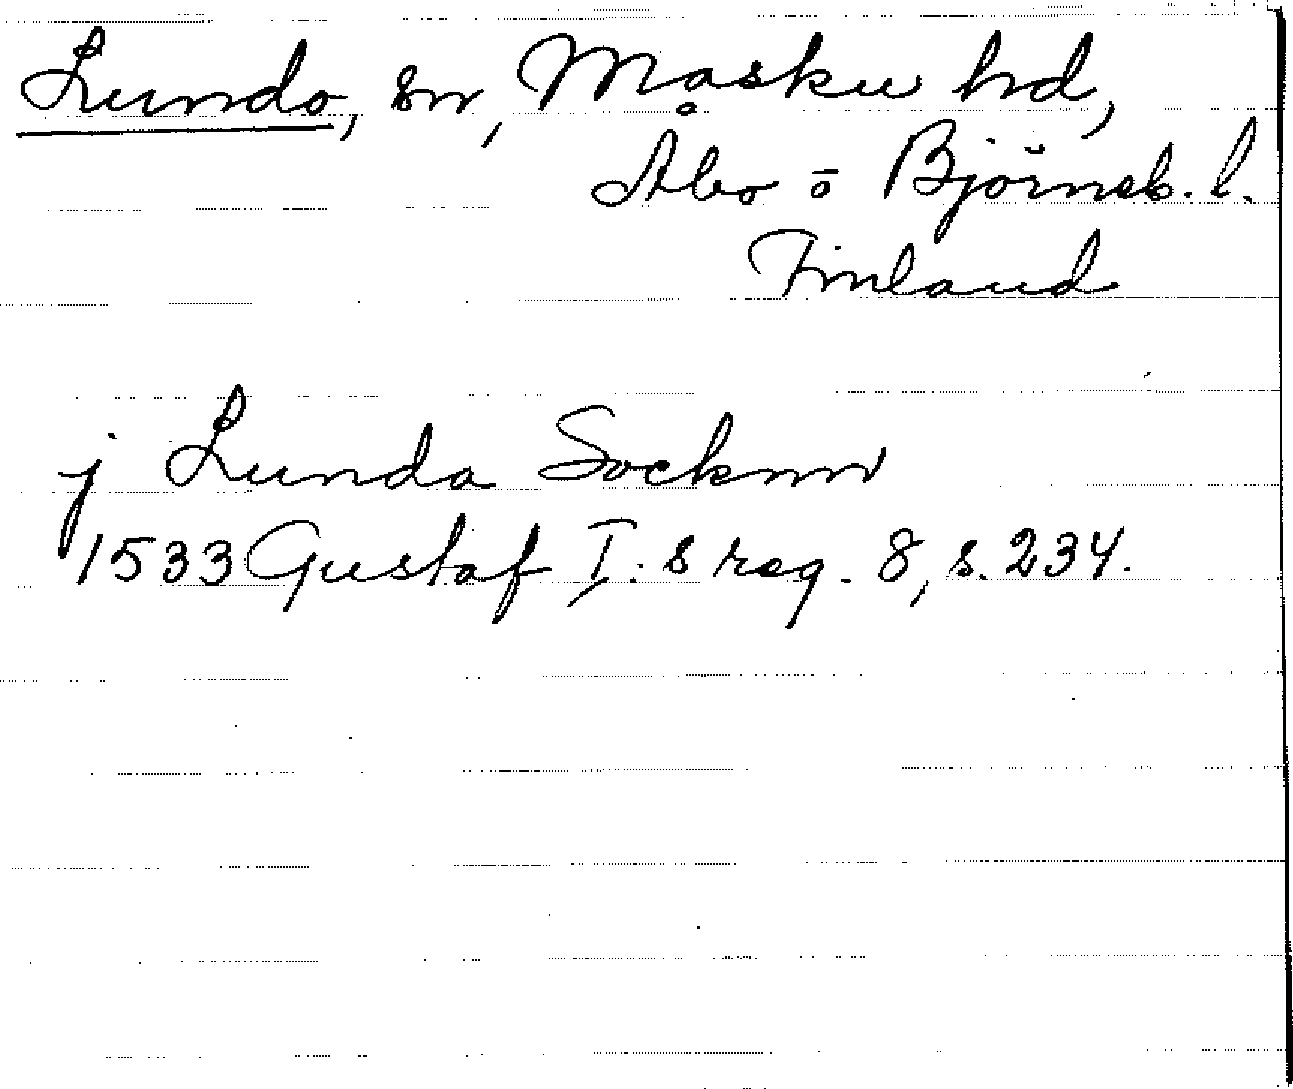 Lundo, sn, Masku hd,
Åbo ō Björneb. l.
Finland
j Lunda Socknn
1533 Gustaf I:s reg. 8, s. 234.